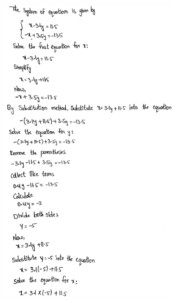 The system of equation is given by
x-3.4y = 11.5
-x+3.5y = -13.5
Solve the first equation for x:
x-3.4y = 11.5
Simplify
x = 3.4y+11.5
Now,
-x + 3.5y = -13.5
By Substitution method, Substitute x = 3.4y + 11.5 into the equation
-(3.4y + 11.5) + 3.5y = -13.5
Solve the equation for y:
-(3.4y + 11.5) + 3.5y = -13.5
Remove the parenthesis
-3.4y - 11.5 + 3.5y = -13.5
Collect like terms
-11.5 = -13.5
Calculate
Divide both sides
Now,
x = 3.4y + 11.5
Substitute into the equation
Solve the equation for x: